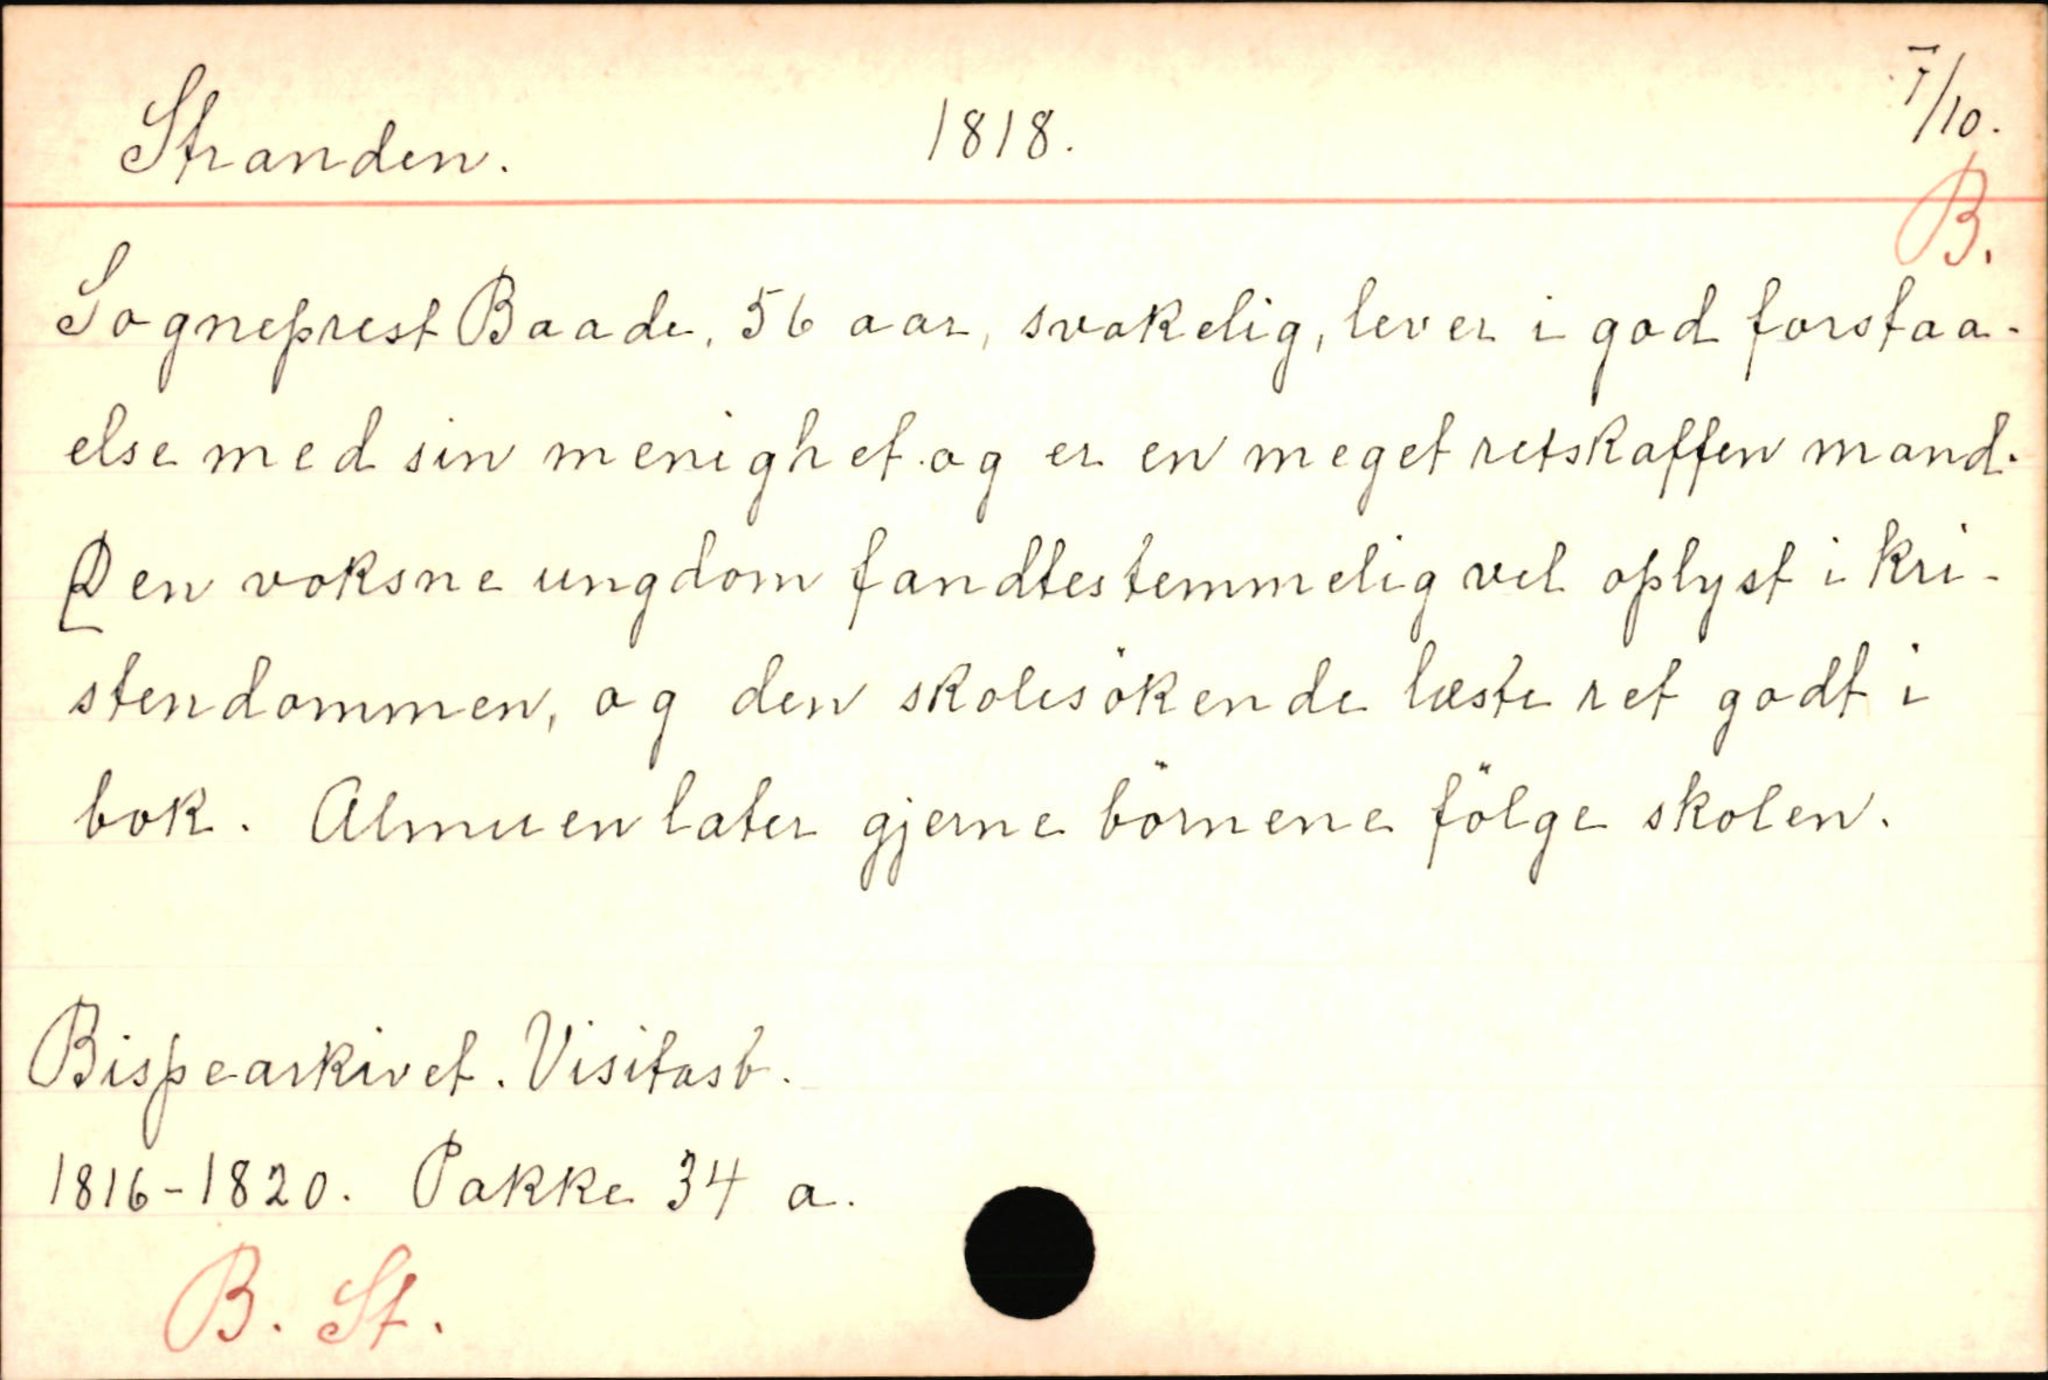 Stranden. 1818. I/10.
B.
Sogneprest Baade, 56 aar, svakelig, lever i god forstaa-
else med sin menighet og er en meget retskaffen mand.
[Den voksne ungdom fandtes temmelig vel oplyst i kri-
stendommen, og den skolesökende læste ret godt i
bok. Almuen later gjerne börnene fölge skolen.
Bispearkivet. Visitasb.
1816-1820. Pakke 34 a.
B. St.